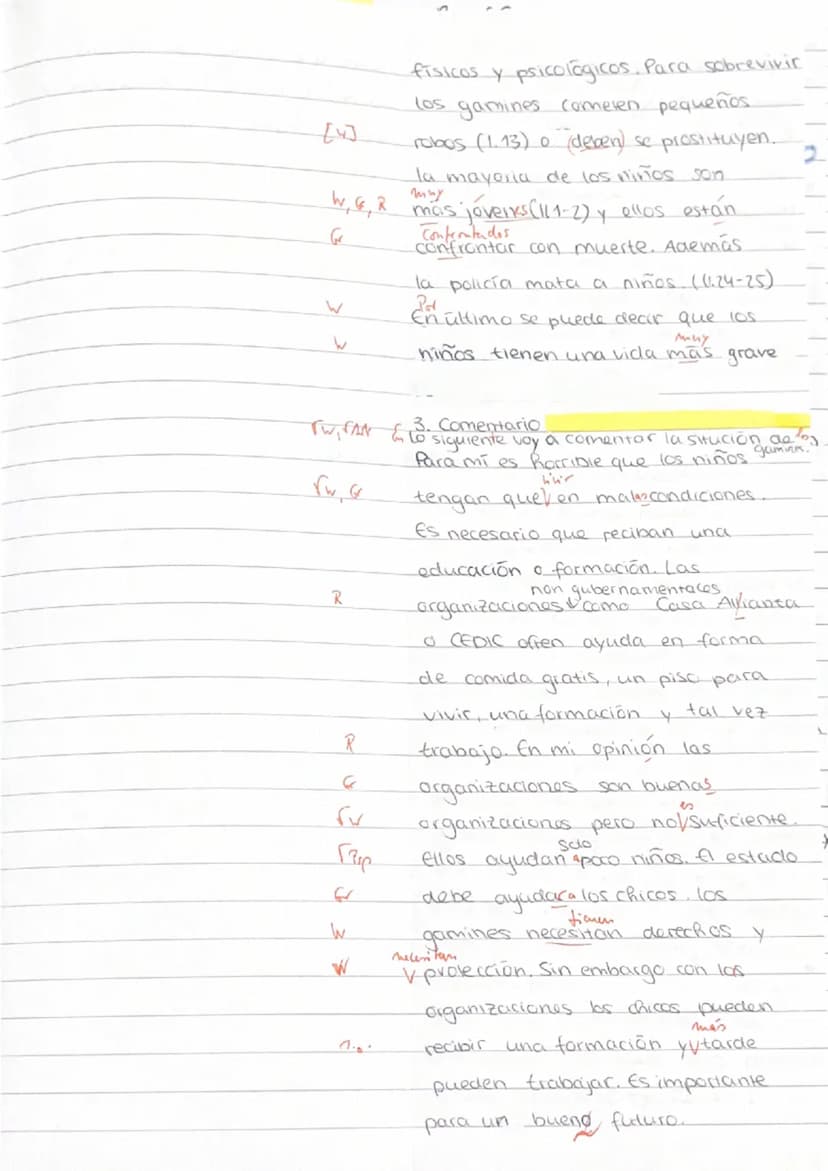 físicos y psicológicos. Para sobrevivir
los gamines cometen pequeños
[4] robos (l.13) o (deben) se prostituyen.
2
la mayoria de los niños son
muy
W, G, R más jóvenes (ll 1-2) y ellos están
Confrontados
G confrontar con muerte. Además
la policía mata a niños. (ll.24-25)
Por
W En último se puede decir que los
muy
W niños tienen una vida más grave
3. Comentario
ΓW, ΓAN En lo siguiente voy a comentar la situción de los
gamines.
Para mí es horrible que los niños
vivir
ΓW, G tengan que V en malas condiciones.
Es necesario que reciban una
educación o formación. Las
non gubernamentales
R organizaciones V como Casa Allianza
o CEDIC ofren ayuda en forma
de comida gratis, un piso para
vivir, una formación y tal vez
R trabajo. En mi opinión las
G organizaciones son buenas
es
ΓV organizaciones pero no V suficiente.
solo
Ellos ayudan a poco niños. El estado
G debe ayudar a los chicos. los
tienen
W gamines necesitan derechos y
necesitan
W V protección. Sin embargo con las
organizaciones los chicos pueden
más
recibir una formación y V tarde
pueden trabajar. Es importante
para un bueno futuro.